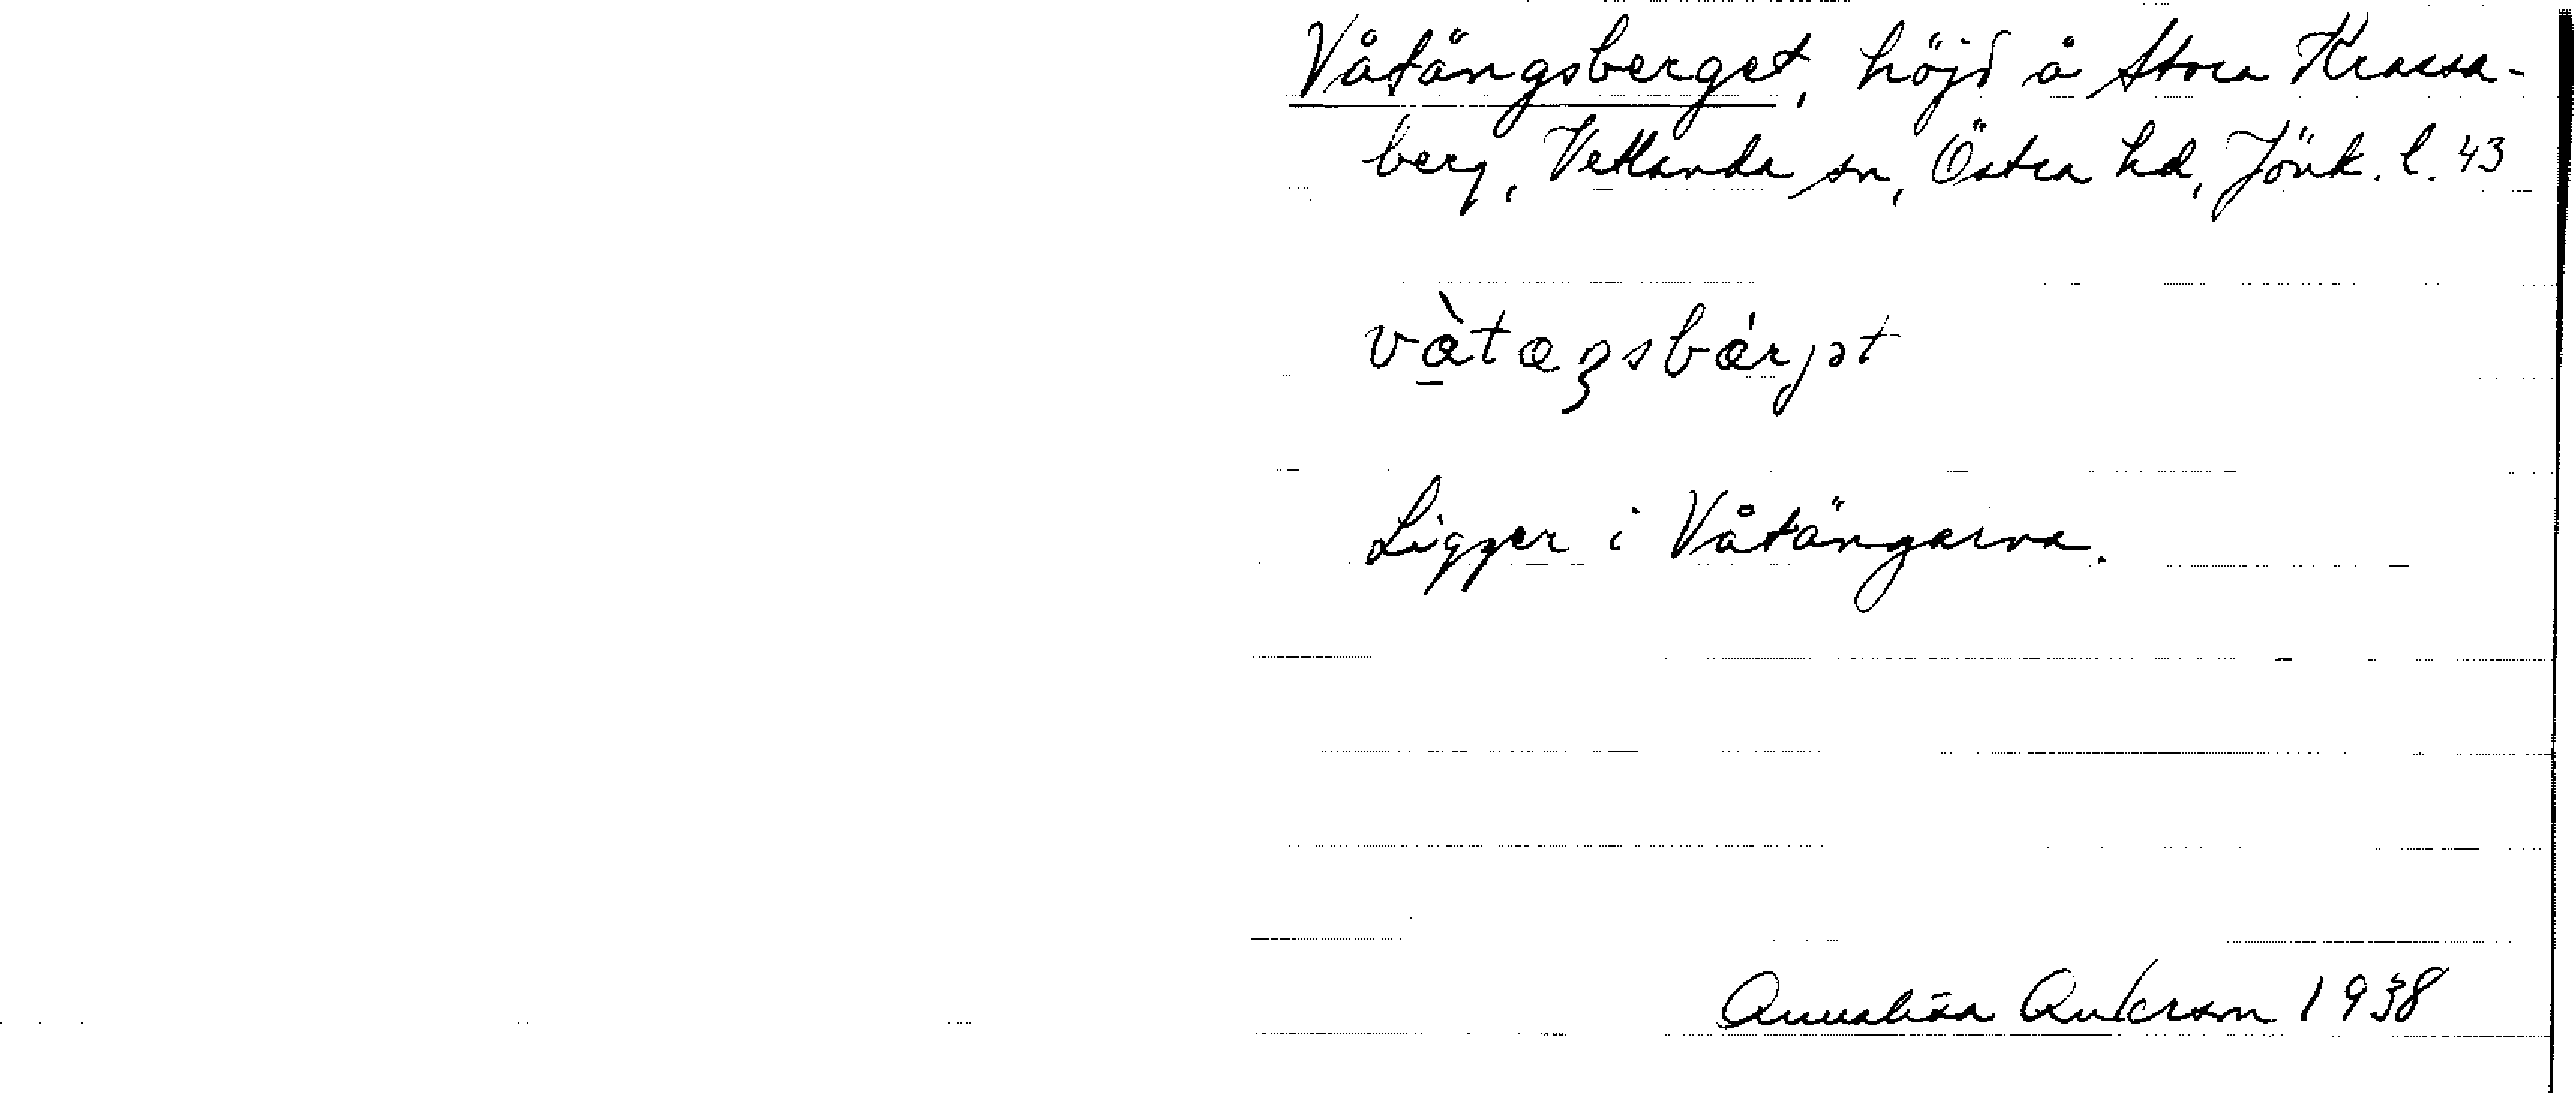 Våtängsberget, höjd å Stora Krassa-
berg, Vetlanda sn, Östra hd, Jönk. l. 43
vàtæŋsbǽrjət
Ligger i Våtängarna.
Annalisa Anderson 1938